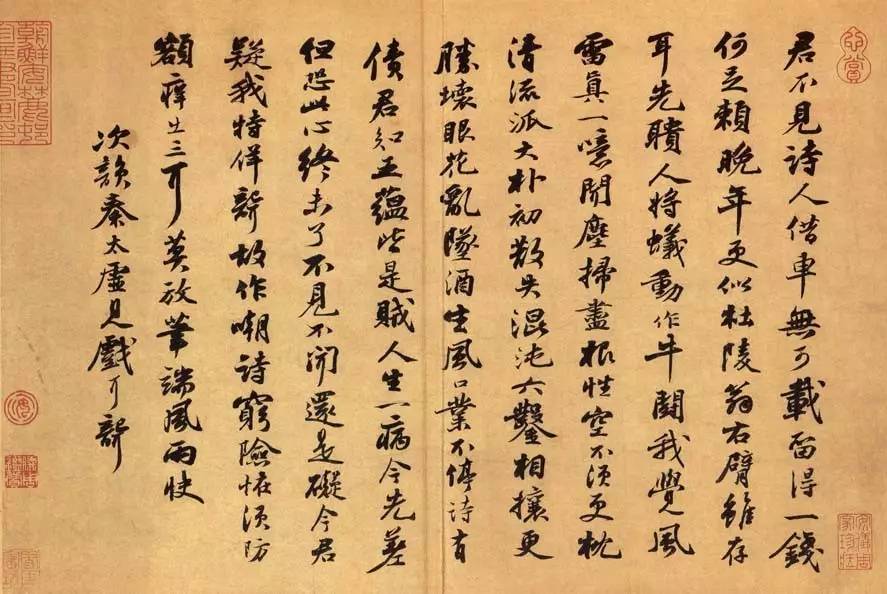 君不見詩人借車無可載留得一錢
何足賴晚年更似杜陵翁右臂雖存
耳先聵人將蟻動作牛鬪我覺風
雷真一噫聞塵掃盡根性空不須更枕
清流派大朴初散失混沌六鑿相攘更
勝壞眼花亂墜酒生風口業不停詩有
債君知五蘊皆是賊人生一病今先差
但恐此心終未了不見不聞還是礙今君
疑我特佯聾故作嘲詩窮險怪須防
額痒出三耳莫放筆端風雨快
次韻秦太虛見戲耳聾
安儀周
家珍藏